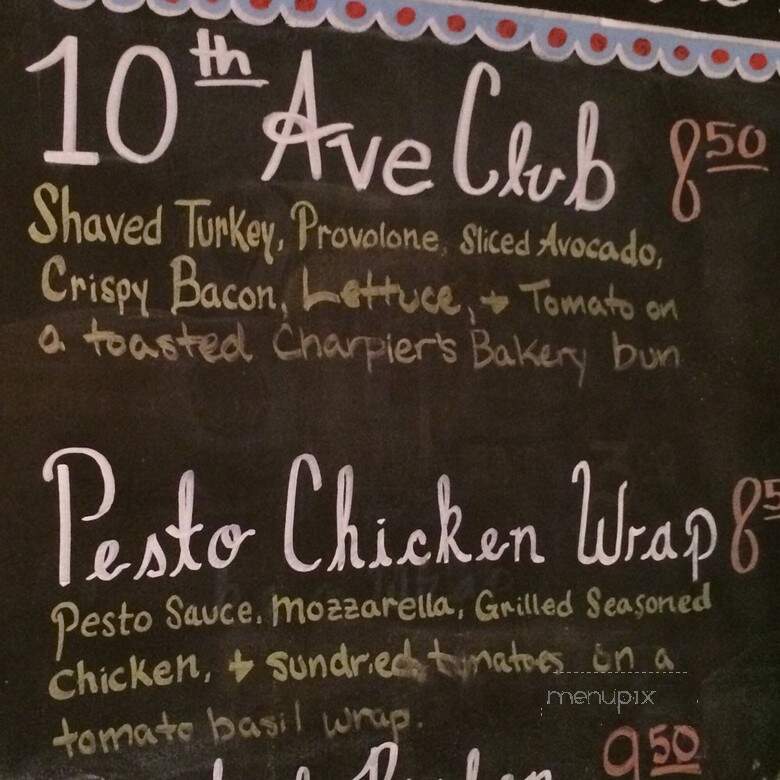 10th Ave Club 8 50
Shaved Turkey, Provolone, Sliced Avocado,
Crispy Bacon, Lettuce, + Tomato on
a toasted Charpier's Bakery bun
Pesto Chicken Wrap 8 5
Pesto Sauce, Mozzarella, Grilled Seasoned
Chicken, + sundried tomatoes on a
tomato basil wrap.
menupix
9 50